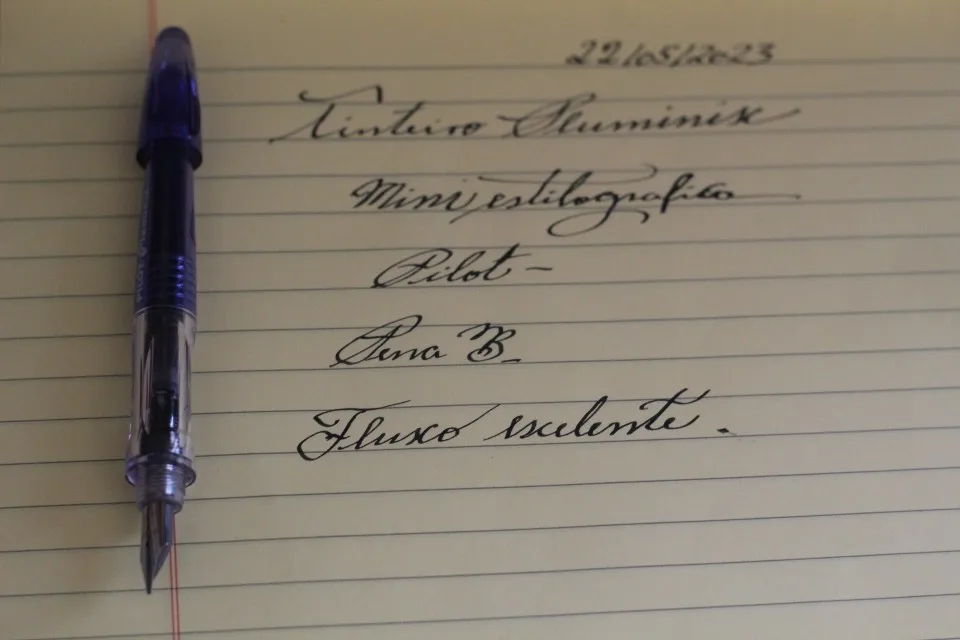 22/05/2023
Tinteiro Pluminix
Mini estilografica
Pilot -
Pena B.
Fluxo excelente.